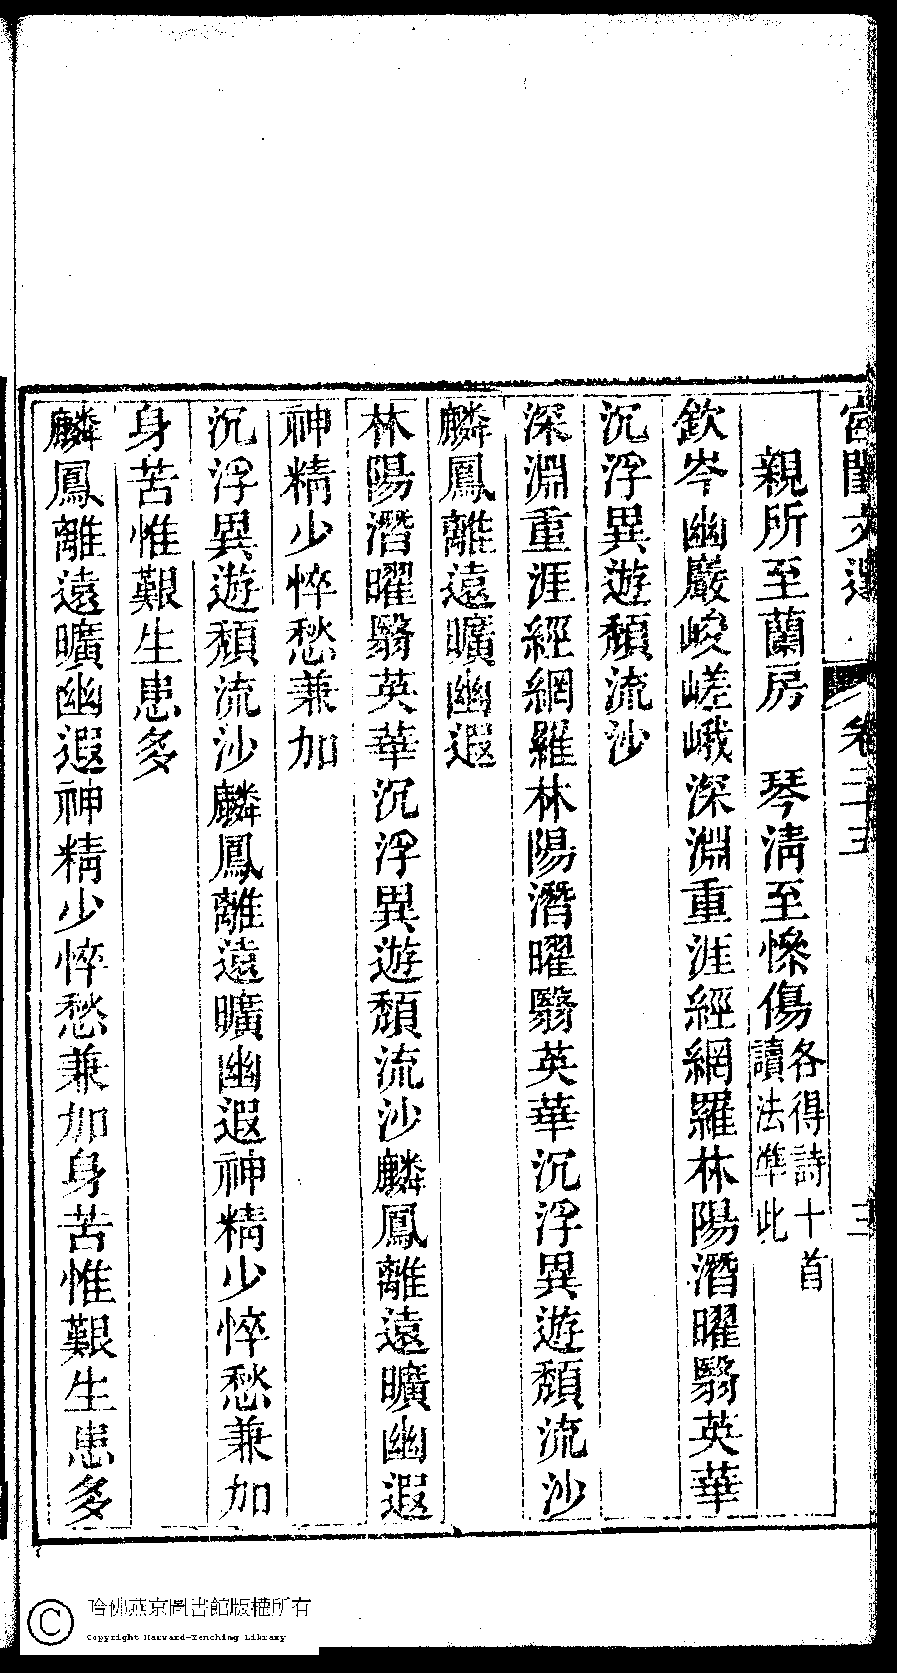 宮閨文選 卷二十五 三
親所至蘭房 琴清至慘傷各得詩十首讀法準此
欽岑幽巖峻嵯峨深淵重涯經網羅林陽潛曜翳英華
沉浮異遊頹流沙
深淵重涯經網羅林陽潛曜翳英華沉浮異遊頹流沙
麟鳳離遠曠幽遐
林陽潛曜翳英華沉浮異遊頹流沙麟鳳離遠曠幽遐
神精少悴愁兼加
沉浮異遊頹流沙麟鳳離遠曠幽遐神精少悴愁兼加
身苦惟艱生患多
麟鳳離遠曠幽遐神精少悴愁兼加身苦惟艱生患多
哈佛燕京圖書館版權所有
Copyright Harvard-Yenching Library